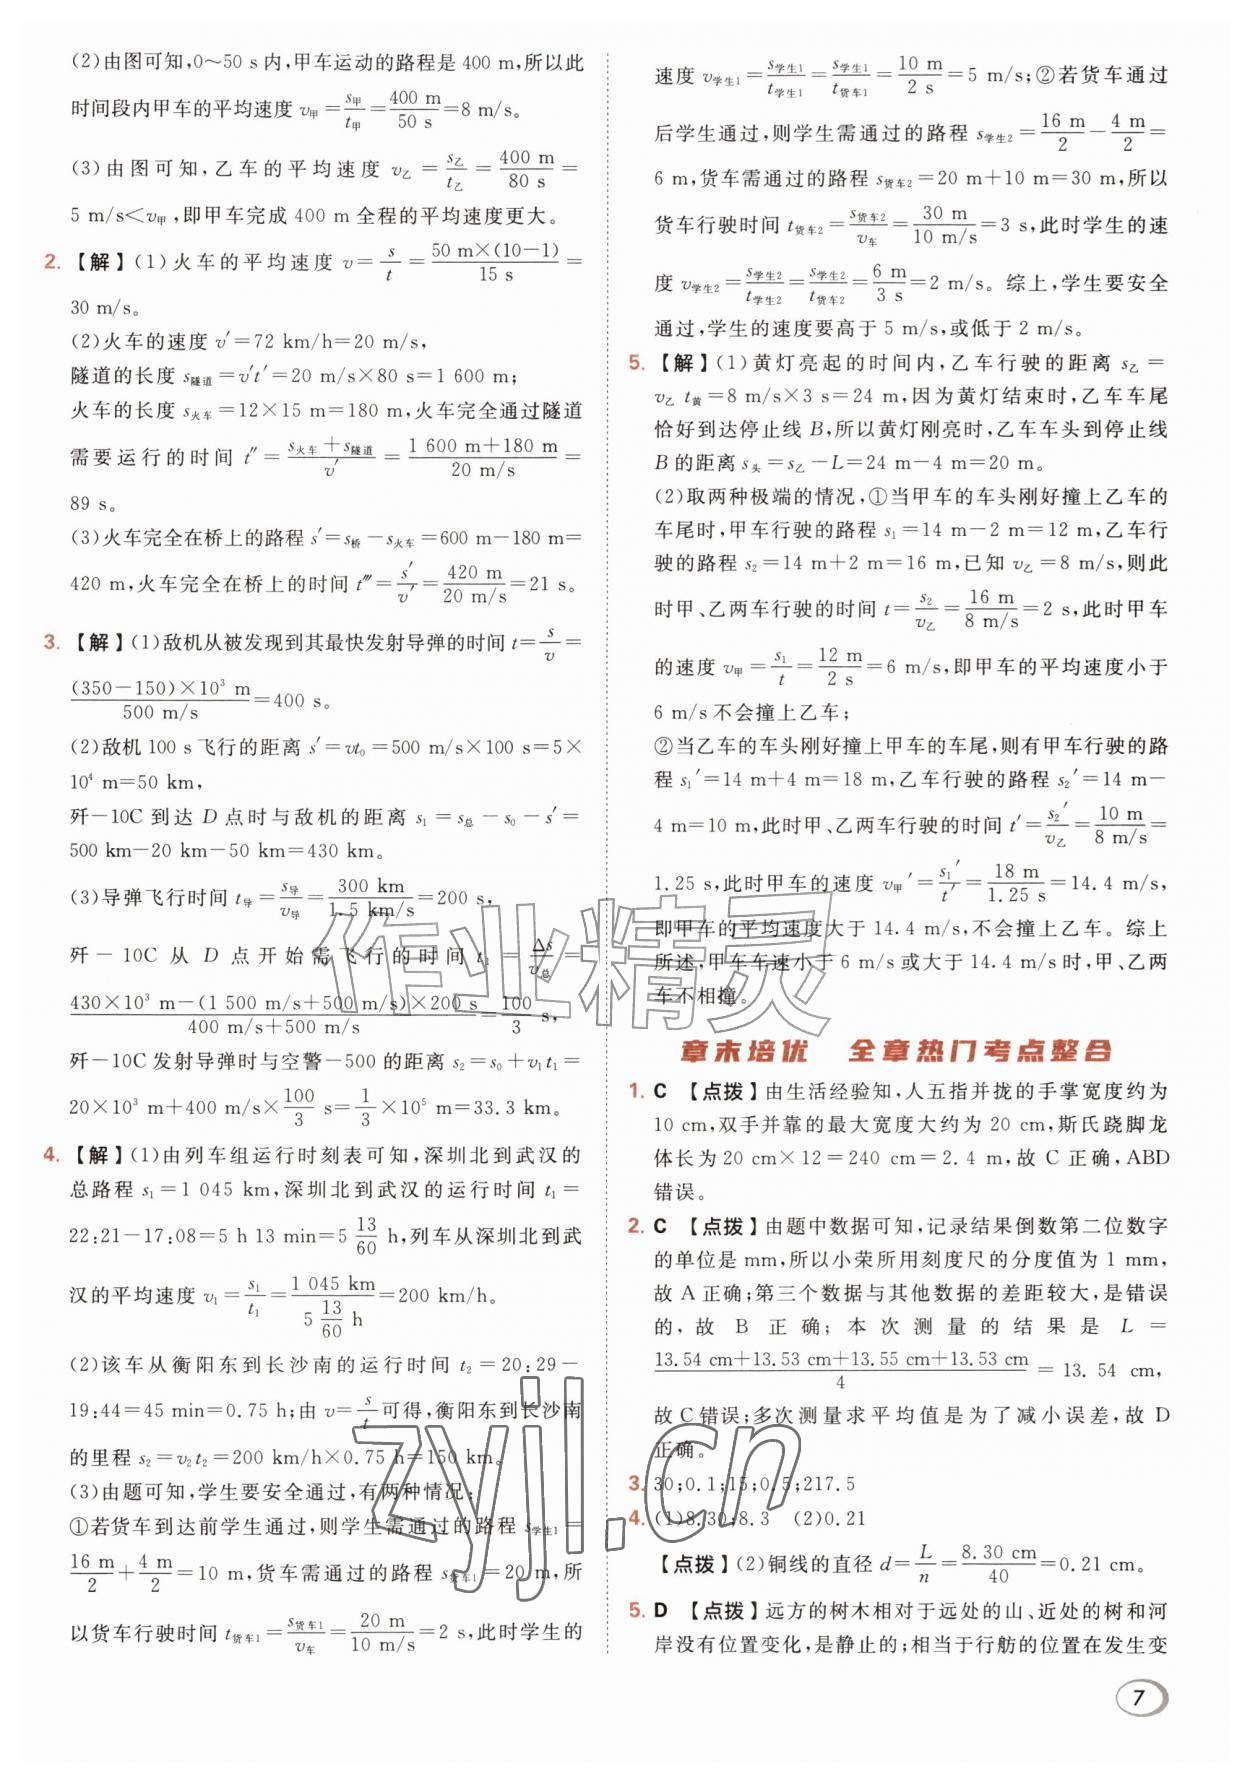 (2)由图可知,0～50 s 内,甲车运动的路程是 400 m,所以此
时间段内甲车的平均速度 v甲=s甲/t甲=400 m/50 s=8 m/s。
(3)由图可知,乙车的平均速度 v乙=s乙/t乙=400 m/80 s=
5 m/s<v甲,即甲车完成 400 m 全程的平均速度更大。
2.【解】(1)火车的平均速度 v=s/t=50 m×(10-1)/15 s=
30 m/s。
(2)火车的速度 v′=72 km/h=20 m/s,
隧道的长度 s隧道=v′t′=20 m/s×80 s=1 600 m;
火车的长度 s火车=12×15 m=180 m,火车完全通过隧道
需要运行的时间 t″=(s火车+s隧道)/v′=(1 600 m+180 m)/(20 m/s)=
89 s。
(3)火车完全在桥上的路程 s′=s桥-s火车=600 m-180 m=
420 m,火车完全在桥上的时间 t‴=s′/v′=420 m/(20 m/s)=21 s。
3.【解】(1)敌机从被发现到其最快发射导弹的时间 t=s/v=
(350-150)×10³ m/(500 m/s)=400 s。
(2)敌机 100 s 飞行的距离 s′=vt₀=500 m/s×100 s=5×
10⁴ m=50 km,
歼-10C 到达 D 点时与敌机的距离 s₁=s总-s₀-s′=
500 km-20 km-50 km=430 km。
(3)导弹飞行时间 t导=s导/v导=300 km/(1.5 km/s)=200 s,
歼-10C 从 D 点开始需飞行的时间 t₁=Δs/v总=
[430×10³ m-(1 500 m/s+500 m/s)×200 s]/(400 m/s+500 m/s)=100/3 s,
歼-10C 发射导弹时与空警-500 的距离 s₂=s₀+v₁t₁=
20×10³ m+400 m/s×100/3 s=1/3×10⁵ m=33.3 km。
4.【解】(1)由列车组运行时刻表可知,深圳北到武汉的
总路程 s₁=1 045 km,深圳北到武汉的运行时间 t₁=
22:21-17:08=5 h 13 min=5 13/60 h,列车从深圳北到武
汉的平均速度 v₁=s₁/t₁=1 045 km/(5 13/60 h)=200 km/h。
(2)该车从衡阳东到长沙南的运行时间 t₂=20:29-
19:44=45 min=0.75 h;由 v=s/t可得,衡阳东到长沙南
的里程 s₂=v₂t₂=200 km/h×0.75 h=150 km。
(3)由题可知,学生要安全通过,有两种情况:
①若货车到达前学生通过,则学生需通过的路程 s学生1=
16 m/2+4 m/2=10 m,货车需通过的路程 s货车1=20 m,所
以货车行驶时间 t货车1=s货车1/v车=20 m/(10 m/s)=2 s,此时学生的
速度 v学生1=s学生1/t学生1=s学生1/t货车1=10 m/2 s=5 m/s;②若货车通过
后学生通过,则学生需通过的路程 s学生2=16 m/2-4 m/2=
6 m,货车需通过的路程 s货车2=20 m+10 m=30 m,所以
货车行驶时间 t货车2=s货车2/v车=30 m/(10 m/s)=3 s,此时学生的速
度 v学生2=s学生2/t学生2=s学生2/t货车2=6 m/3 s=2 m/s。综上,学生要安全
通过,学生的速度要高于 5 m/s,或低于 2 m/s。
5.【解】(1)黄灯亮起的时间内,乙车行驶的距离 s乙=
v乙 t黄=8 m/s×3 s=24 m,因为黄灯结束时,乙车车尾
恰好到达停止线 B,所以黄灯刚亮时,乙车车头到停止线
B 的距离 s头=s乙-L=24 m-4 m=20 m。
(2)取两种极端的情况,①当甲车的车头刚好撞上乙车的
车尾时,甲车行驶的路程 s₁=14 m-2 m=12 m,乙车行
驶的路程 s₂=14 m+2 m=16 m,已知 v乙=8 m/s,则此
时甲、乙两车行驶的时间 t=s₂/v乙=16 m/(8 m/s)=2 s,此时甲车
的速度 v甲=s₁/t=12 m/2 s=6 m/s,即甲车的平均速度小于
6 m/s 不会撞上乙车;
②当乙车的车头刚好撞上甲车的车尾,则有甲车行驶的路
程 s₁′=14 m+4 m=18 m,乙车行驶的路程 s₂′=14 m-
4 m=10 m,此时甲、乙两车行驶的时间 t′=s₂′/v乙=10 m/(8 m/s)=
1.25 s,此时甲车的速度 v甲′=s₁′/t′=18 m/1.25 s=14.4 m/s,
即甲车的平均速度大于 14.4 m/s,不会撞上乙车。综上
所述,甲车车速小于 6 m/s 或大于 14.4 m/s时,甲、乙两
车不相撞。
章末培优 全章热门考点整合
1. C 【点拨】由生活经验知,人五指并拢的手掌宽度约为
10 cm,双手并靠的最大宽度大约为 20 cm,斯氏跷脚龙
体长为 20 cm×12=240 cm=2.4 m,故 C 正确,ABD
错误。
2. C 【点拨】由题中数据可知,记录结果倒数第二位数字
的单位是 mm,所以小荣所用刻度尺的分度值为 1 mm,
故 A 正确;第三个数据与其他数据的差距较大,是错误
的,故 B 正确;本次测量的结果是 L=
(13.54 cm+13.53 cm+13.55 cm+13.53 cm)/4=13.54 cm,
故 C 错误;多次测量求平均值是为了减小误差,故 D
正确。
3. 30;0.1;15;0.5;217.5
4. (1)8.30;8.3 (2)0.21
【点拨】(2)铜线的直径 d=L/n=8.30 cm/40=0.21 cm。
5. D 【点拨】远方的树木相对于远处的山、近处的树和河
岸没有位置变化,是静止的;相当于行舫的位置在发生变
作业精灵
zyjl.cn
7